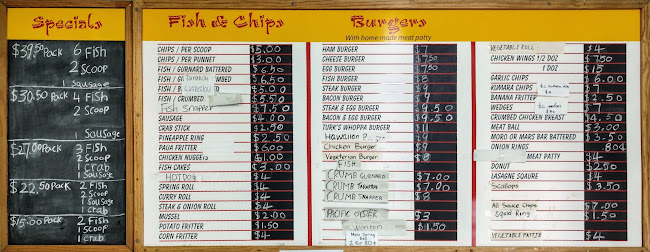 Specials
$39.50 Pack 6 Fish
2 Scoop
1 Sausage
$30.50 Pack 4 Fish
2 Scoop
1 Sausage
$27.00 Pack 3 Fish
2 Scoop
1 Sausage
1 Crab
$22.50 Pack 2 Fish
2 Scoop
1 Sausage
1 Crab
$15.00 Pack 2 Fish
1 Scoop
1 Crab
Fish & Chips
CHIPS / PER SCOOP $5.00
CHIPS / PER PUNNET $3.00
FISH / GURNARD BATTERED $6.50
FISH / TARAKIHI $6.50
FISH / $5.00
FISH / CRUMBED $5.50
Fish Snapper $7.50
SAUSAGE $4.00
CRAB STICK $2.50
PINEAPPLE RING $2.50
PAUA FRITTER $6.00
CHICKEN NUGGETS $1.00
FISH CAKES $3.00
HOTDOG $4
SPRING ROLL $4
CURRY ROLL $4
STEAK & ONION ROLL $4
MUSSEL $2.00
POTATO FRITTER $1.50
CORN FRITTER $4
Burgers
With home made meat patty
HAM BURGER $7
CHEESE BURGER $7.50
EGG BURGER $7.50
FISH BURGER $8
STEAK BURGER $9
BACON BURGER $9
STEAK & EGG BURGER $9.50
BACON & EGG BURGER $9.50
TURK'S WHOPPA BURGER $11
Hawaiian $9
Chicken Burger $9
Vegeterian Burger $8
FISH
CRUMB GURNARD $7.00
CRUMB TARAKIHI $7.00
CRUMB SNAPPER $8
PACIFIC OYSTER $3
Wonton $1.50
VEGETABLE ROLL $4
CHICKEN WINGS 1/2 DOZ $7.50
1 DOZ $15
GARLIC CHIPS $8.00
KUMARA CHIPS $7
BANANA FRITTER $2.50
WEDGES $7
CRUMBED CHICKEN BREAST $4.50
MEAT BALL $3.00
MORO OR MARS BAR BATTERED $3.50
ONION RINGS 80¢
MEAT PATTY $4
DONUT $2.50
LASAGNE SQAURE $4
Scallops $3.50
All Sauce Chips $7.00
Squid Ring $1.50
VEGETABLE PATTY $4